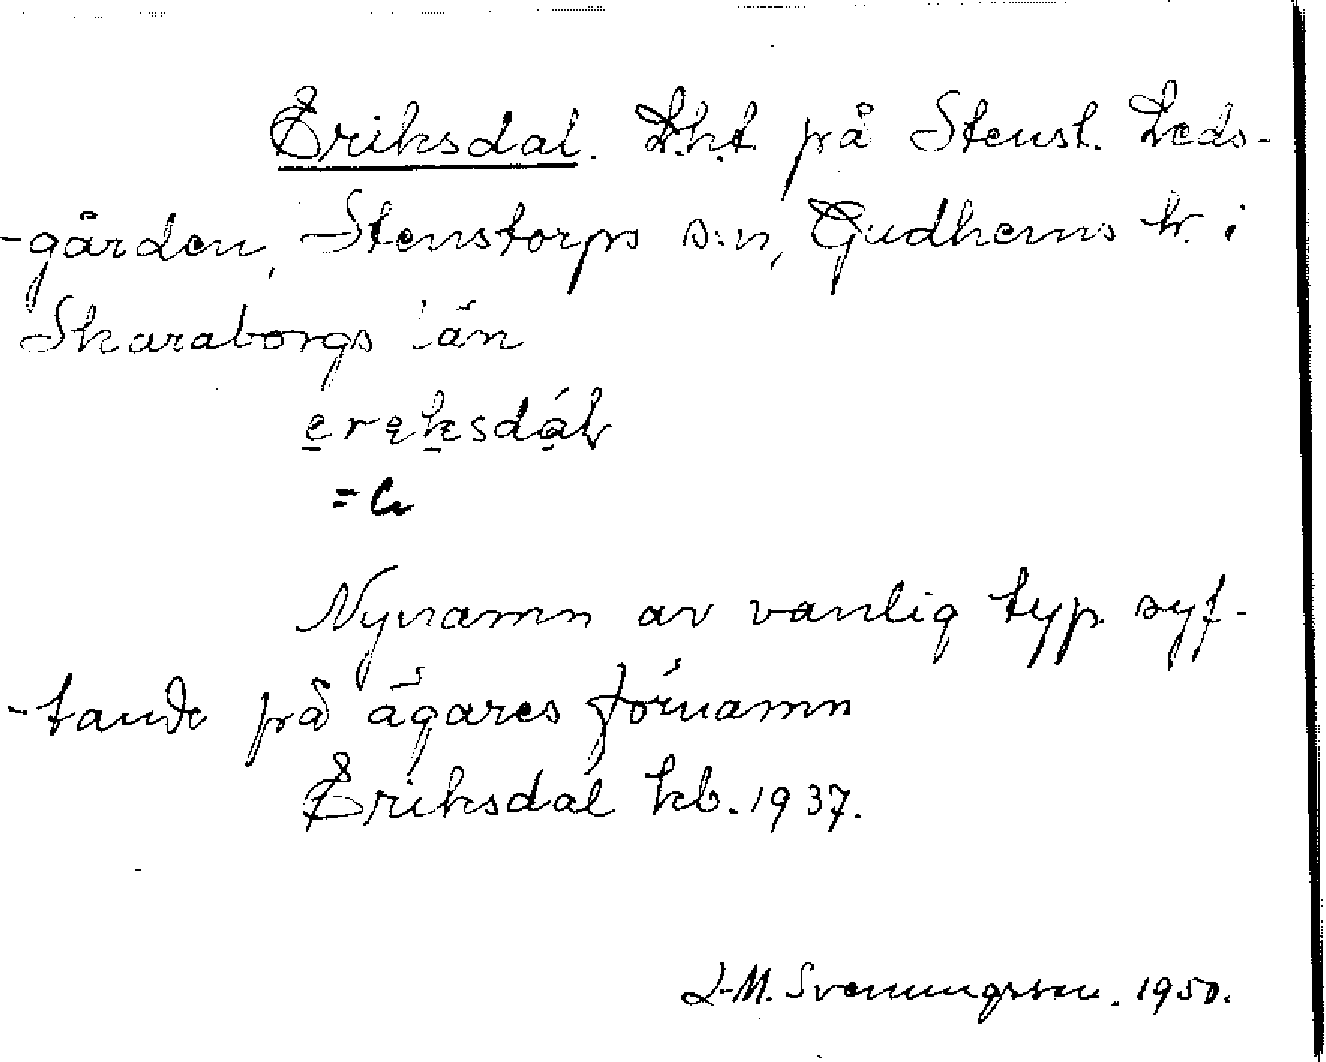 Eriksdal. Lht på Stenst. Leds-
-gården, Stenstorps s:n, Gudhems hr. i
Skaraborgs län
Nynamn av vanlig typ syf-
-tande på ägares förnamn
Eriksdal kb. 1937.
L-M. Svenungsson. 1950.